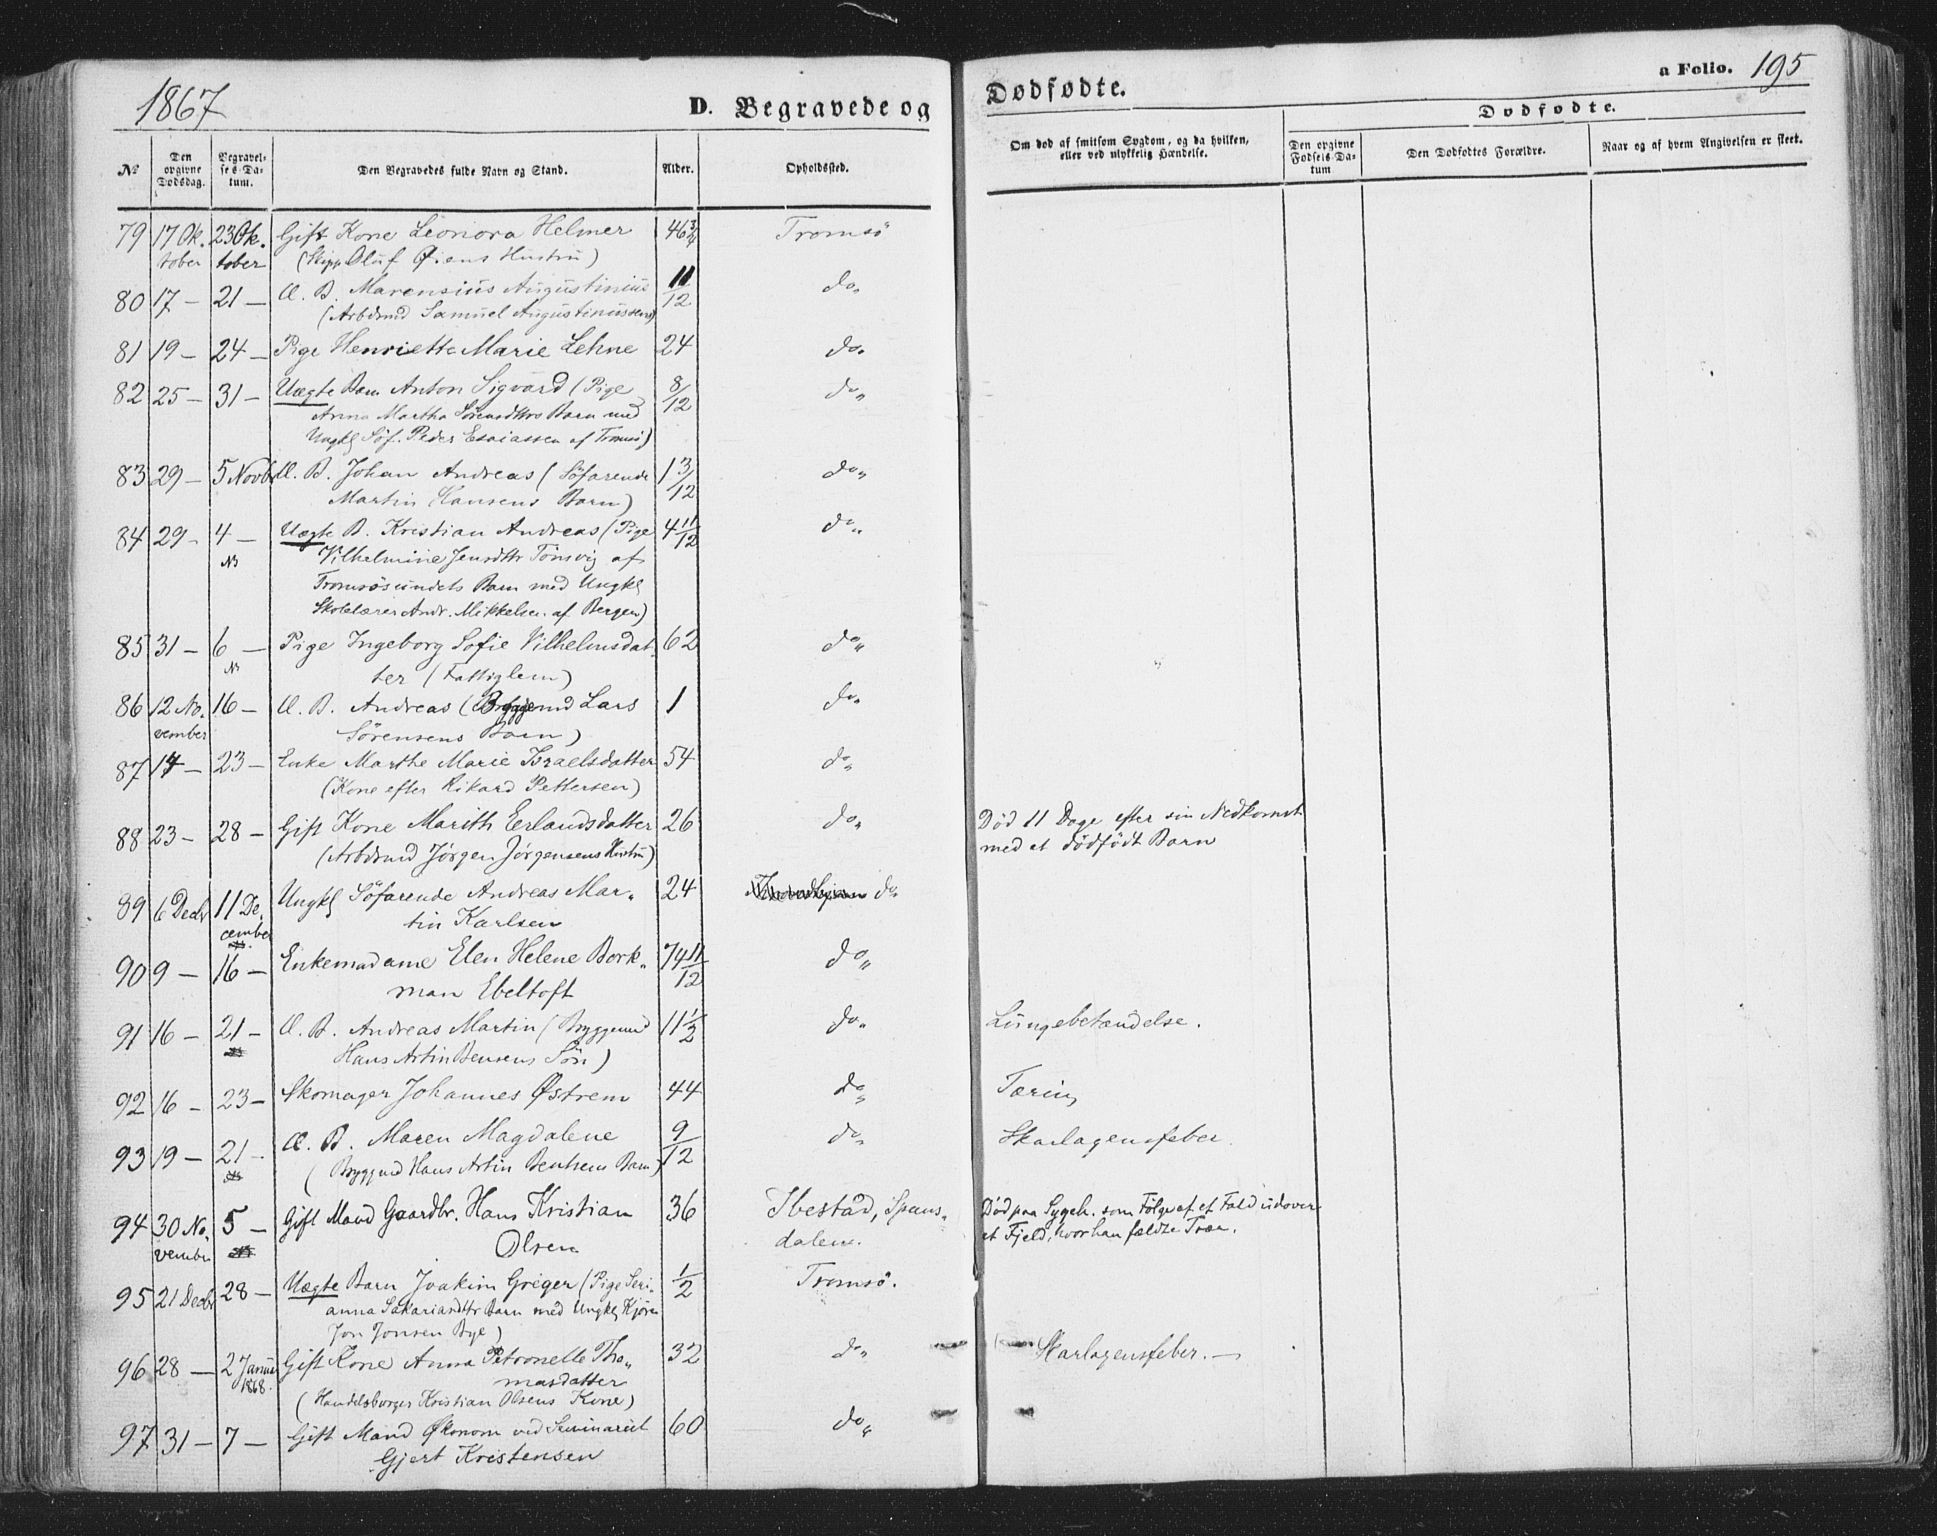 1867
D. Begravede og
Dødfødte.
a Folio. 195
Dødfødte.
№
Den opgivne Dødsdag.
Begravelses-Datum.
Den Begravedes fulde Navn og Stand.
Alder.
Opholdssted.
Om død af smitsom Sygdom, og da hvilken, eller ved ulykkelig Hændelse.
Den opgivne Fødsels-Datum
Den Dødfødtes Forældre.
Naar og af hvem Angivelsen er skeet.
79 17 Ok. 23 Ok. Gift Kone Leonora Helmer 46¾ Tromsö
tober tober (Skipp. Oluf Øiens Hustru)
80 17 – 21 – Æ. B. Marensius Augustinius 11/12 do„
(Arbdsmd Samuel Augustinussens)
81 19 – 24 – Pige Henriette Marie Lehne 24 do„
82 25 – 31 – Uægte Barn Anton Sigvard (Pige 8/12 do„
Anna Martha Sörensdttrs Barn med
Ungkl Söf. Peder Esaiassen af Tromsö)
83 29 – 5 Novbr Æ. B. Johan Andreas (Söfarende 1 3/12 do„
Martin Hansens Barn)
84 29 – 4 – Uægte B. Kristian Andreas (Pige 4 11/12 do„
Nr Vilhelmine Jensdttr Tönsvig af
Tromsösundets Barn med Ungkl
Skolelærer Andr. Mikkelsen af Bergen)
85 31 – 6 – Pige Ingeborg Sofie Vilhelmsdat- 62 do„
Nr ter (Fattiglem)
86 12 No. 16 – Æ. B. Andreas (Bryggemd Lars 1 do„
vember Sörensens Barn)
87 14 – 23 – Enke Marthe Marie Israelsdatter 54 do„
(Kone efter Rikard Pettersen)
88 23 – 28 – Gift Kone Marith Erlandsdatter 26 do„ Död 11 Dage efter sin Nedkomst
(Arbdsmd Jörgen Jörgensens Hustru) med et dödfödt Barn
89 6 Decbr 11 De. Ungkl Söfarende Andreas Mar„ 24 do„
cember tin Karlsen
90 9 – 16 – Enkemadame Elen Helene Bork„ 74 11/12 do„
man Ebeltoft
91 16 – 21 – Æ. B. Andreas Martin (Bryggemd 11½ do„ Lungebetændelse.
Hans Artin Bensens Sön)
92 16 – 23 – Skomager Johannes Østrem 44 do„ Tæring
93 19 – 21 – Æ. B. Maren Magdalene 9/12 do„ Skarlagensfeber.
(Bryggmd Hans Artin Bentsens Barn)
94 30 No. 5 – Gift Mand Gaardbr. Hans Kristian 36 Ibestad, Spans„ Död paa Sygeh. som Fölge af et Fald udover
vember Olsen dalen. et Fjeld, hvor han fældte Træer.
95 21 Decbr 28 – Uægte Barn Joakim Greger (Pige Seri- ½ Tromsö.
anna Sakariasdttr Barn med Ungkl Kjöre
Jon Jonsen Bye)
96 28 – 2 Januar Gift Kone Anna Petronelle Tho„ 32 do„ Skarlagensfeber. –
1868. masdatter
(Handelsborger Kristian Olsens Kone)
97 31 – 7 – Gift Mand Økonom ved Seminariet 60 do„
Gjert Kristensen